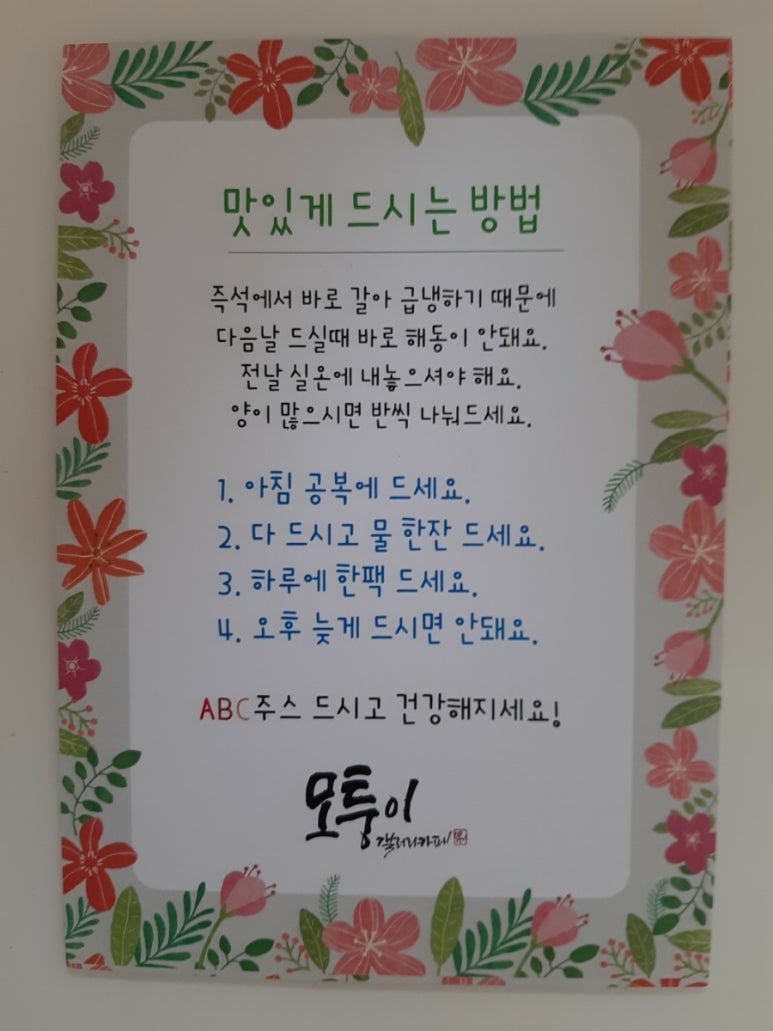 맛있게 드시는 방법
즉석에서 바로 갈아 급냉하기 때문에
다음날 드실때 바로 해동이 안돼요.
전날 실온에 내놓으셔야 해요.
양이 많으시면 반씩 나눠드세요.
1. 아침 공복에 드세요.
2. 다 드시고 물 한잔 드세요.
3. 하루에 한팩 드세요.
4. 오후 늦게 드시면 안돼요.
ABC주스 드시고 건강해지세요!
모퉁이
갤러리카페